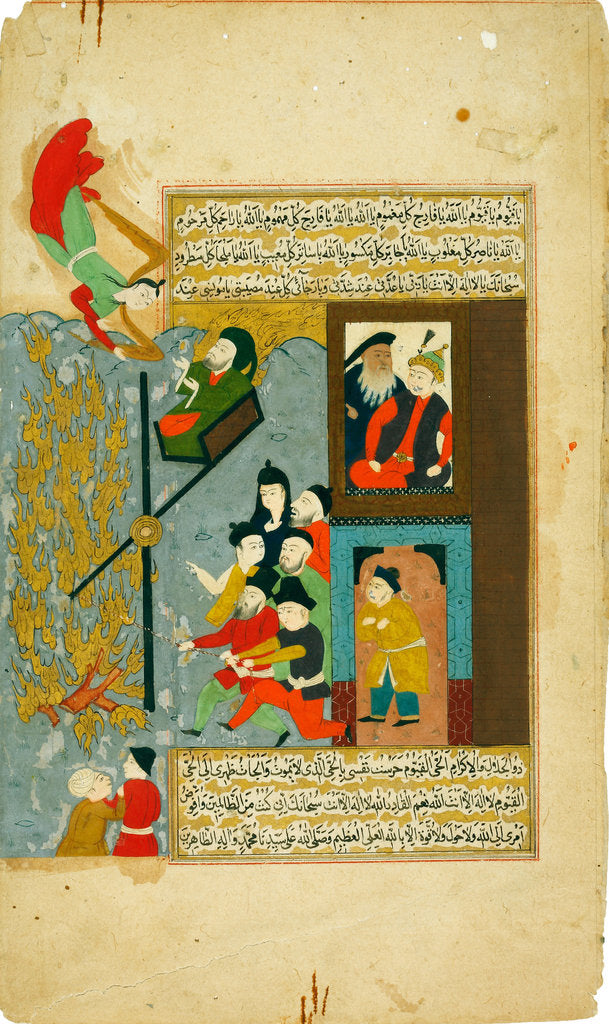 يا قيوم يا قيوم يا الله يا فارج كل مغموم يا الله يا الله يا فارج كل مهموم يا الله يا راحم كل مرحوم
يا الله يا ناصر كل مغلوب يا الله يا جابر كل مكسور يا الله يا ساتر كل معيب يا الله يا ملجأ كل مطرود
سبحانك يا لا اله الا انت يا عدتي عند شدتي ويا رجائي عند مصيبتي يا مونسي عند
ذو الجلال والاكرام الحي القيوم حرست نفسي بالحي الذي لا يموت والجأت ظهري الى الحي
القيوم لا اله الا انت الله نعم القادر الله لا اله الا انت سبحانك اني كنت من الظالمين وافوض
امري الى الله ولا حول ولا قوة الا بالله العلي العظيم وصلى الله على سيدنا محمد واله الطاهرين